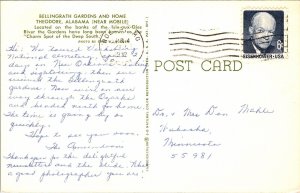 BELLINGRATH GARDENS AND HOME
THEODORE, ALABAMA (NEAR MOBILE)
Located on the banks of the Isle-aux-Oies
River the Gardens have long been known as the
"Charm Spot of the Deep South."
Hi: We toured Vicksburg
National Cemetery,
days in New Orleans
and sightseeing, then we
cruised thru the Bellingrath
Gardens. Now we're on our
way through the Ozarks
and headed north for home.
The time is going by so
quickly.
Hope to see you soon.
The
Thank you for the delightful
newsletters and the slide. What
a good photographer you are.
POST CARD
EISENHOWER·USA
Dr. & Mrs Don Mahle
Wabasha
Minnesota
55981